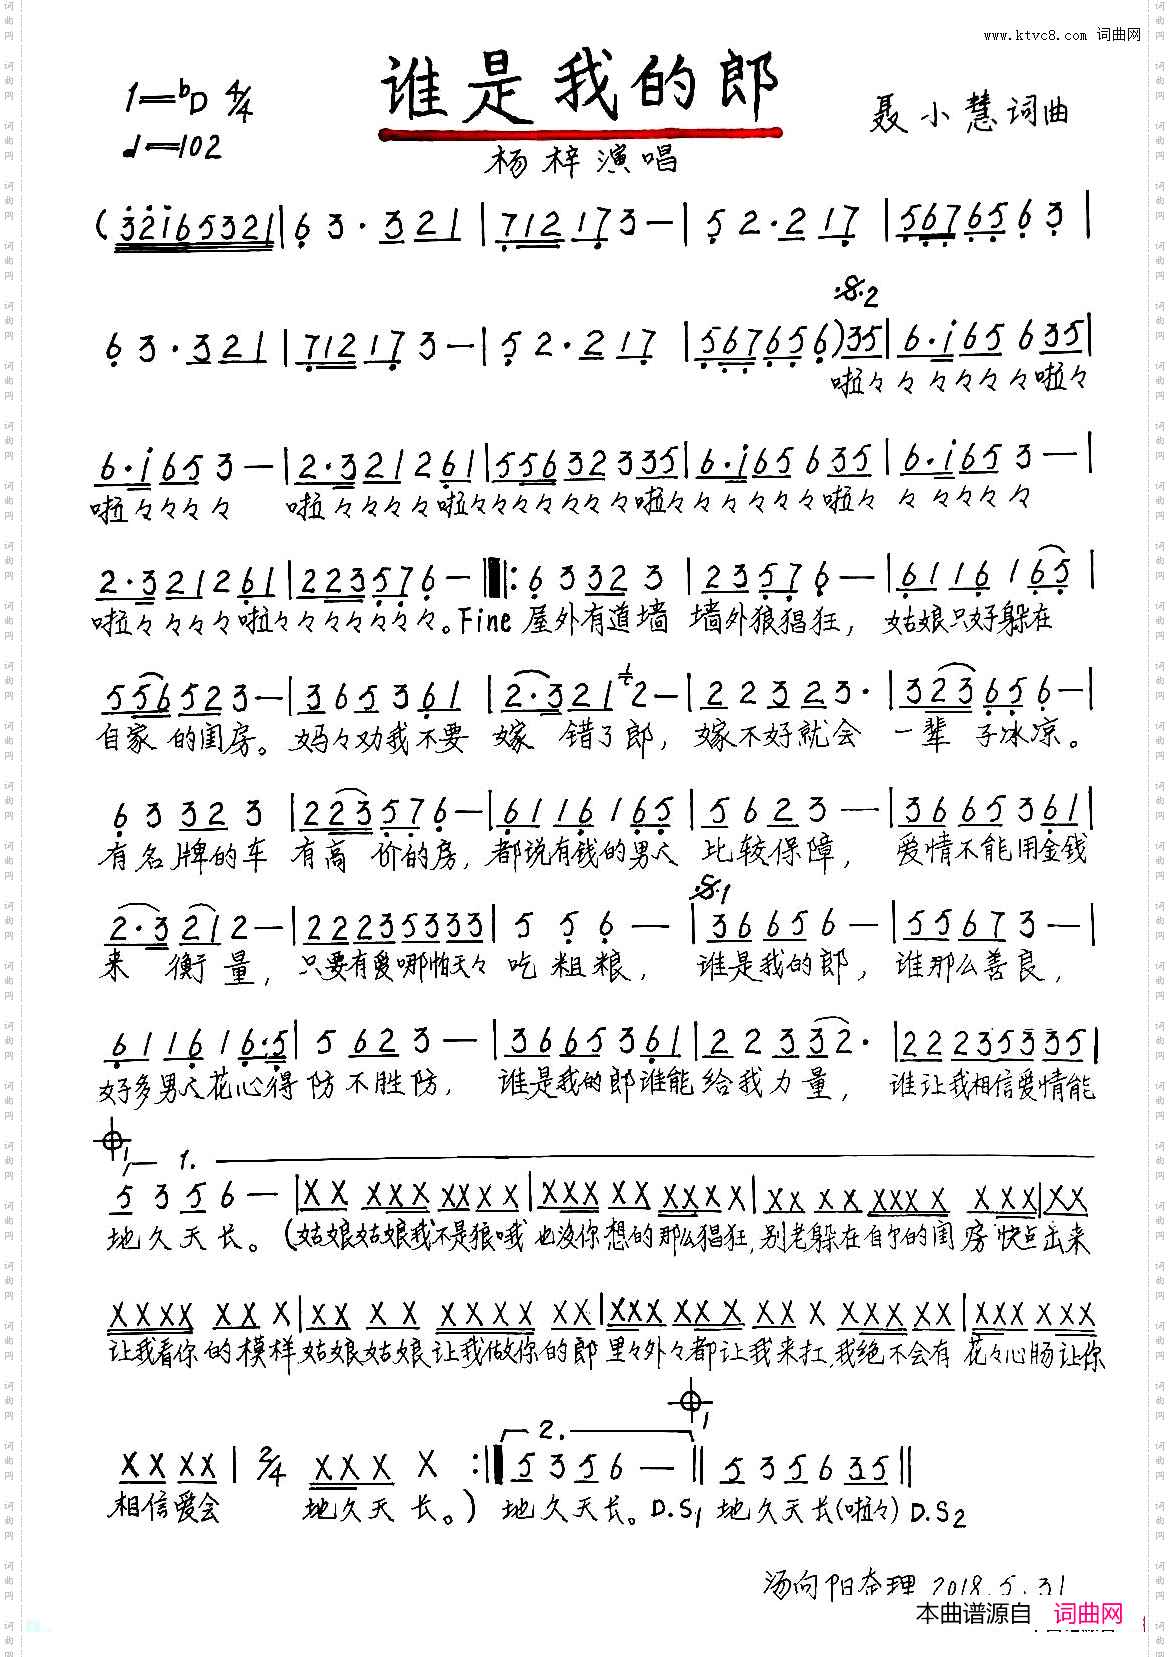 www.ktvc8.com 词曲网
谁是我的郎
1=bD 4/4
聂小慧词曲
♩=102
杨梓演唱
(32165321|6 3·321|712173—|5 2·217|56765 6 3|
𝄋2
6 3·321|712173—|5 2·217|567656)35|6·165 635|
啦々々々々々々啦々
6·165 3—|2·321261|556323335|6·165 635|6·165 3—|
啦々々々々 啦々々々々啦々々々々々々啦々々々々々啦々 々々々々々
2·321261|223576—‖:6 3 323|23576—|6116165|
啦々々々々啦々々々々々々々。Fine 屋外有道墙 墙外狼猖狂，姑娘只好躲在
556523—|365361|2·3212—|22323·|323656—|
自家的闺房。妈々劝我不要 嫁 错了郎，嫁不好就会 一辈 子冰凉。
6 3 323|223576—|6116165|5623—|3665361|
有名牌的车 有高 价的房，都说有钱的男人 比较保障，爱情不能用金钱
𝄋1
2·3212—|22235333|5 5 6—|36656—|55673—|
来 衡量，只要有爱哪怕天々吃粗粮，谁是我的郎，谁那么善良，
611616·5|5623—|3665361|22332·|22235335|
好多男人花心得 防不胜防，谁是我的郎谁能 给我力量，谁让我相信爱情能
1 1.
5356—|XX XXX XXXX|XXX XX XXXX|XX XX XXXX XXX|XX
地久天长。(姑娘姑娘我不是狼哦 也没你想的那么猖狂,别老躲在自家的闺房 快点出来
XXXX XX X|XX XX XXXX XX|XXX XXX XX X XXXX XX|XXX XXX
让我看你的模样 姑娘姑娘让我做你的郎 里々外々都让我来扛,我绝不会有 花々心肠让你
2. 1
XX XX|2/4 XXX X :‖5356—‖535635‖
相信爱会 地久天长。) 地久天长。D.S1 地久天长(啦々) D.S2
汤向阳查理 2018.5.31
本曲谱源自 词曲网